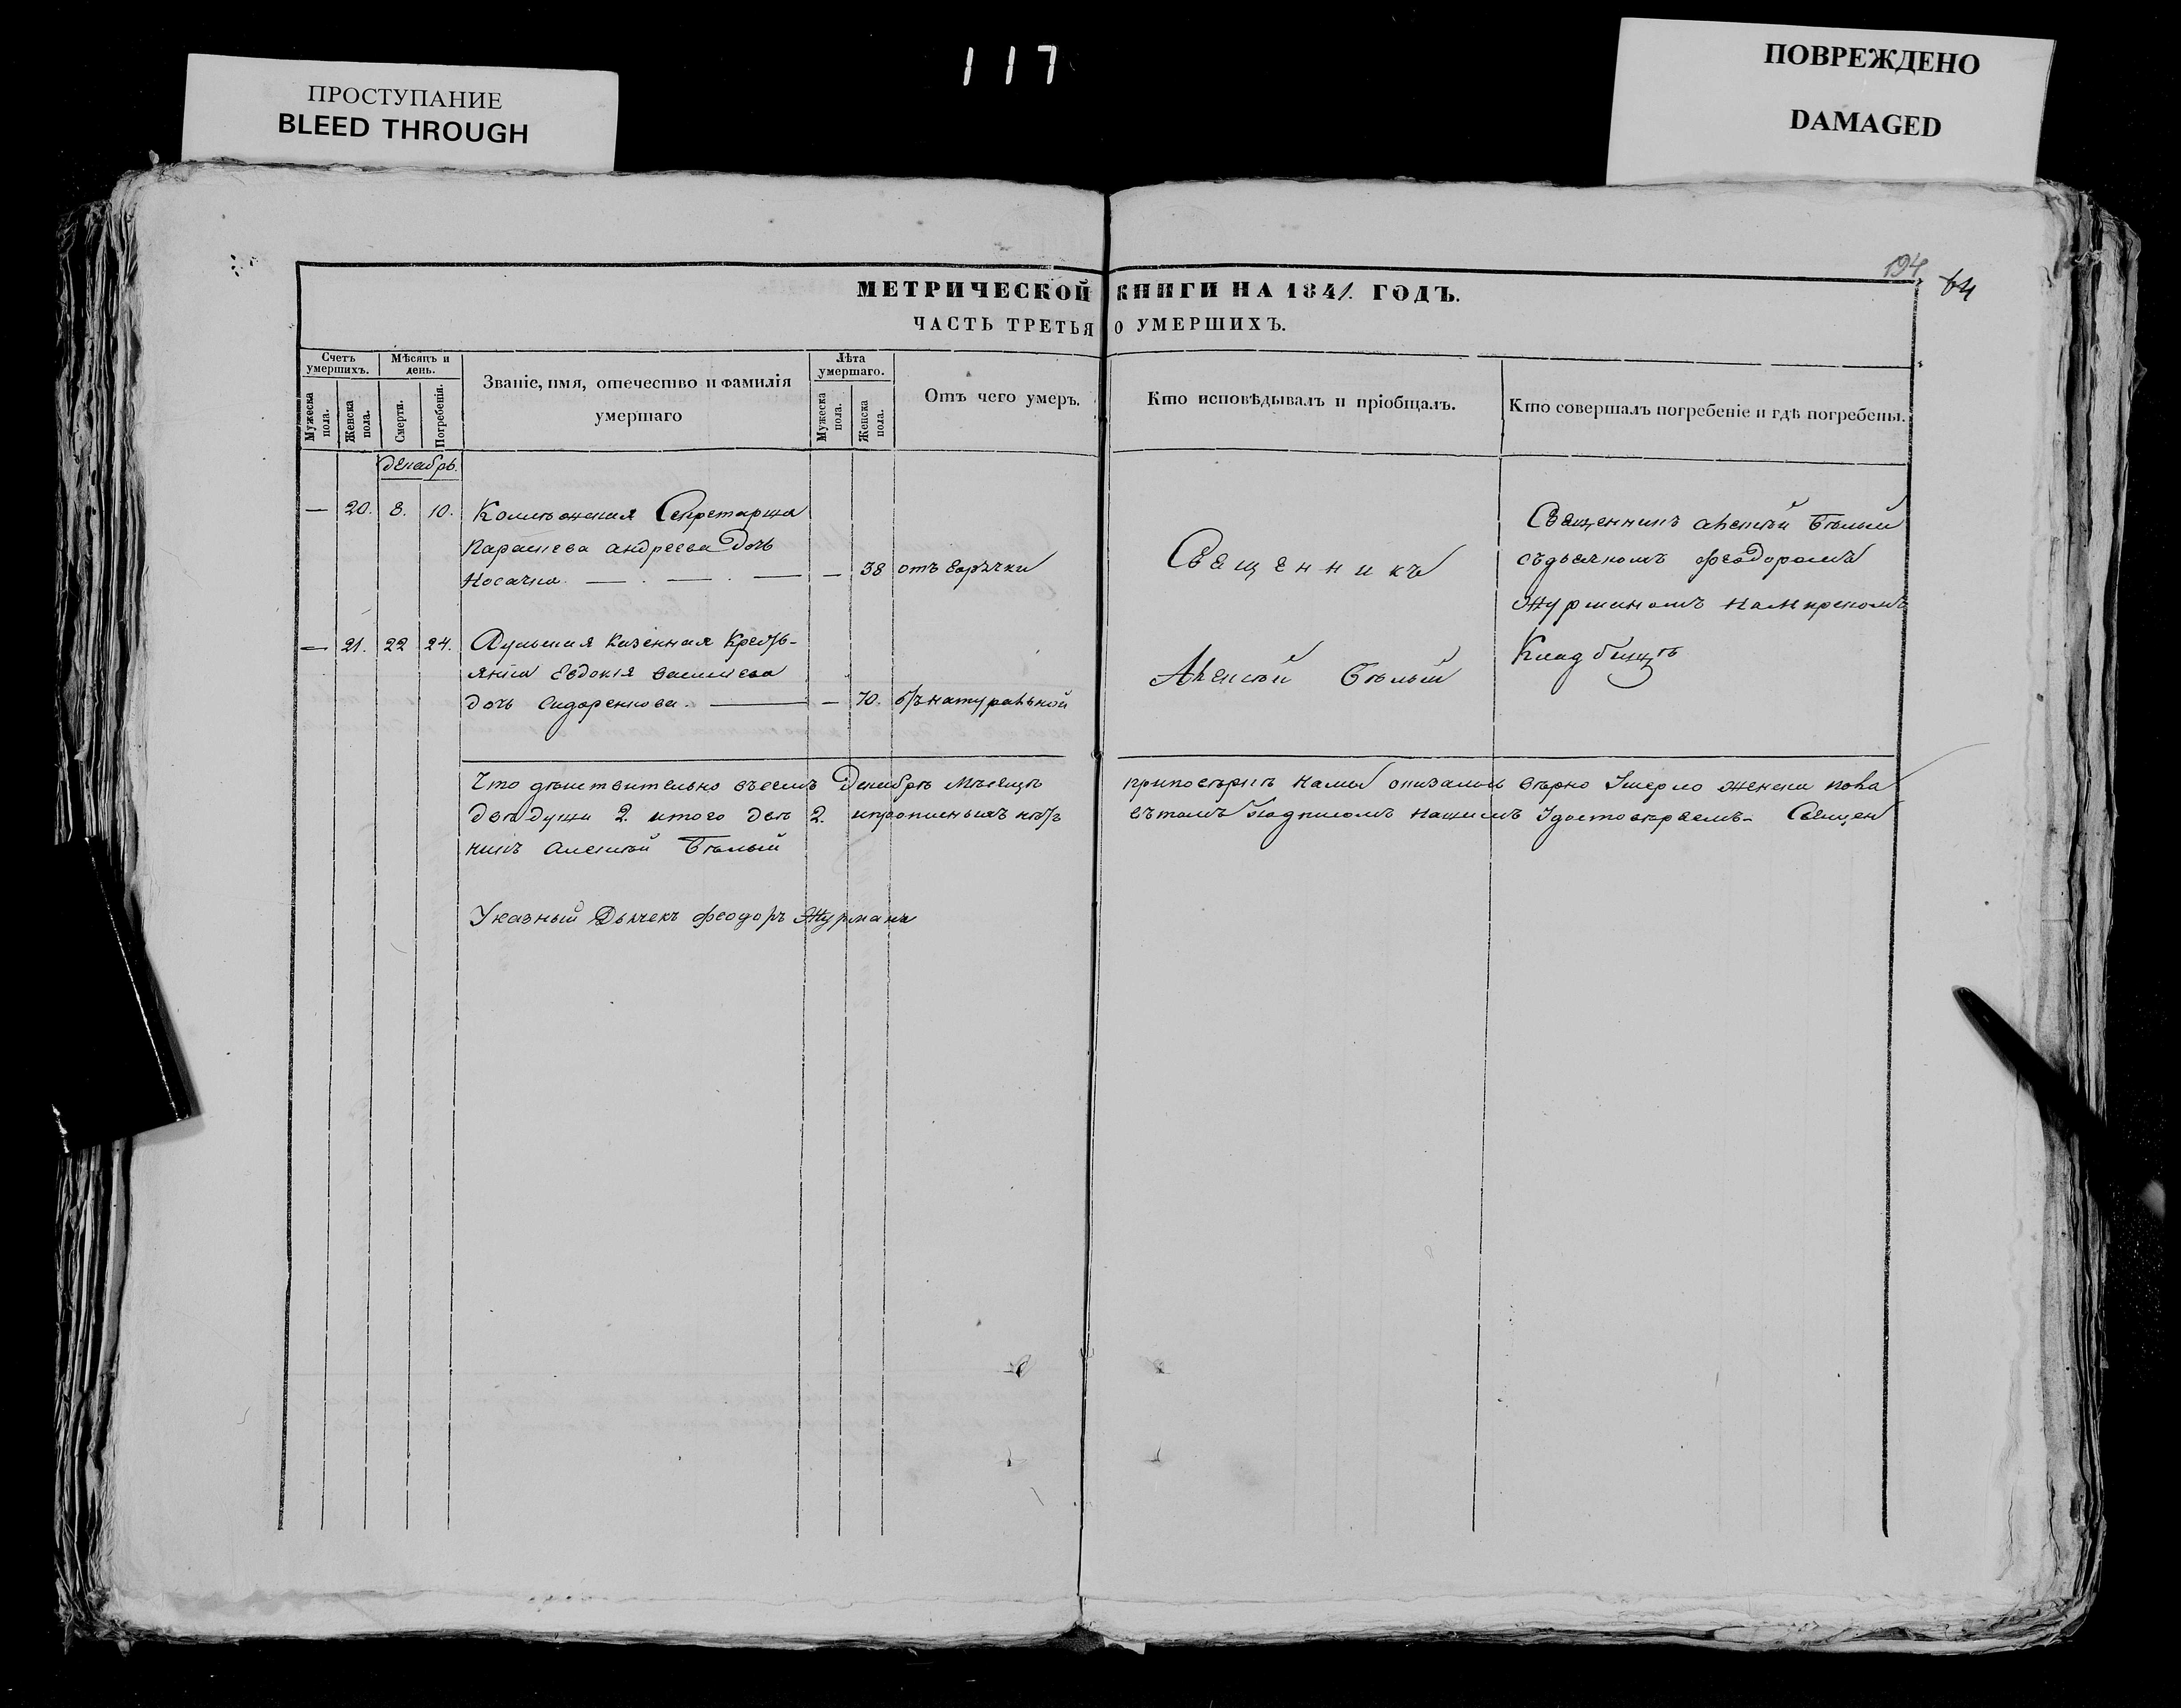 117
ПРОСТУПАНИЕ
BLEED THROUGH
ПОВРЕЖДЕНО
DAMAGED
194
64
МЕТРИЧЕСКОЙ КНИГИ НА 1841. ГОДЪ.
ЧАСТЬ ТРЕТЬЯ О УМЕРШИХЪ.
Счетъ умершихъ.
Мужеска пола.
Женска пола.
Мѣсяцъ и день.
Смерти.
Погребенія.
Званіе, имя, отечество и фамилія
умершаго
Лѣта умершаго.
Мужеска пола.
Женска пола.
Отъ чего умеръ.
Кто исповѣдывалъ и пріобщалъ.
Кто совершалъ погребеніе и гдѣ погребены.
декабрь.
— 20. 8. 10. Секретарша
андреева дочь
— 38 отъ горячки
— 21. 22 24. казенная Кресть-
янка Евдокія василіева
дочь Сидоренкова. — — 70. натуральной
Священникъ
Алексѣй Бѣлый
Священникъ алексѣй Бѣлый
съдьячкомъ феодоромъ
Журманомъ
Кладбищѣ
Что дѣйствительно въсемъ Декабрѣ мѣсяцѣ нами вѣрно Умерло женска пола
двѣ души 2. итого двѣ 2. вътомъ подписомъ нашимъ Удостовѣряемъ. Священ
никъ Алексѣй Бѣлый
Указный Дьячекъ феодоръ Журманъ